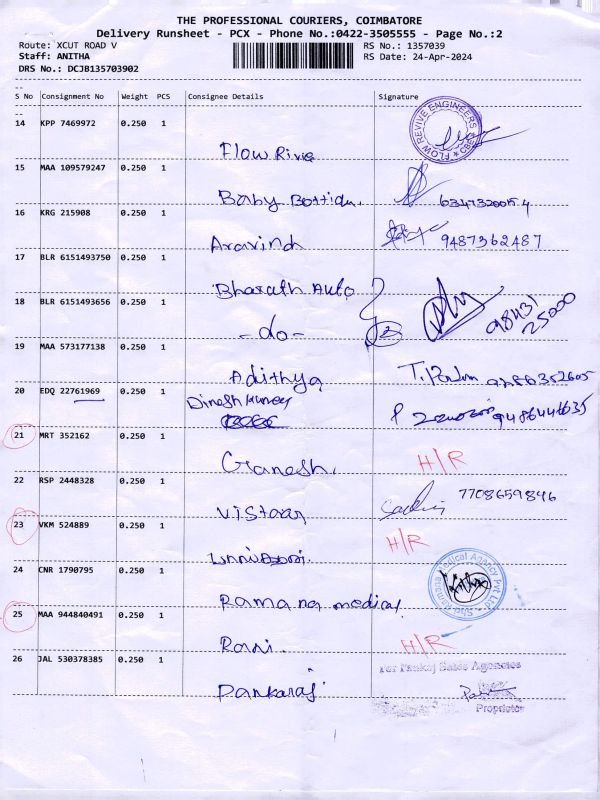 THE PROFESSIONAL COURIERS, COIMBATORE
Delivery Runsheet - PCX - Phone No.:0422-3505555 - Page No.:2
Route: XCUT ROAD V
RS No.: 1357039
Staff: ANITHA
RS Date: 24-Apr-2024
DRS No.: DCJB135703902
S No Consignment No Weight PCS Consignee Details Signature
14 KPP 7469972 0.250 1
FLOW REVIVE ENGINEERS CBE
Flow Rive
15 MAA 109579247 0.250 1
Baby
16 KRG 215908 0.250 1
Aravind 9487362487
17 BLR 6151493750 0.250 1
Bharath Auto
18 BLR 6151493656 0.250 1
-do- 25000
19 MAA 573177138 0.250 1
Adithya
20 EDQ 22761969 0.250 1
Dinesh
21 MRT 352162 0.250 1
Ganesh. H/R
22 RSP 2448328 0.250 1
7708659846
23 VKM 524889 0.250 1
H/R
24 CNR 1790795 0.250 1
Medical Agency Pvt Ltd
Ramana medical
25 MAA 944840491 0.250 1
Rani. H/R
26 JAL 530378385 0.250 1
For Pankaj Sales Agencies
Pankaraj
Proprietor